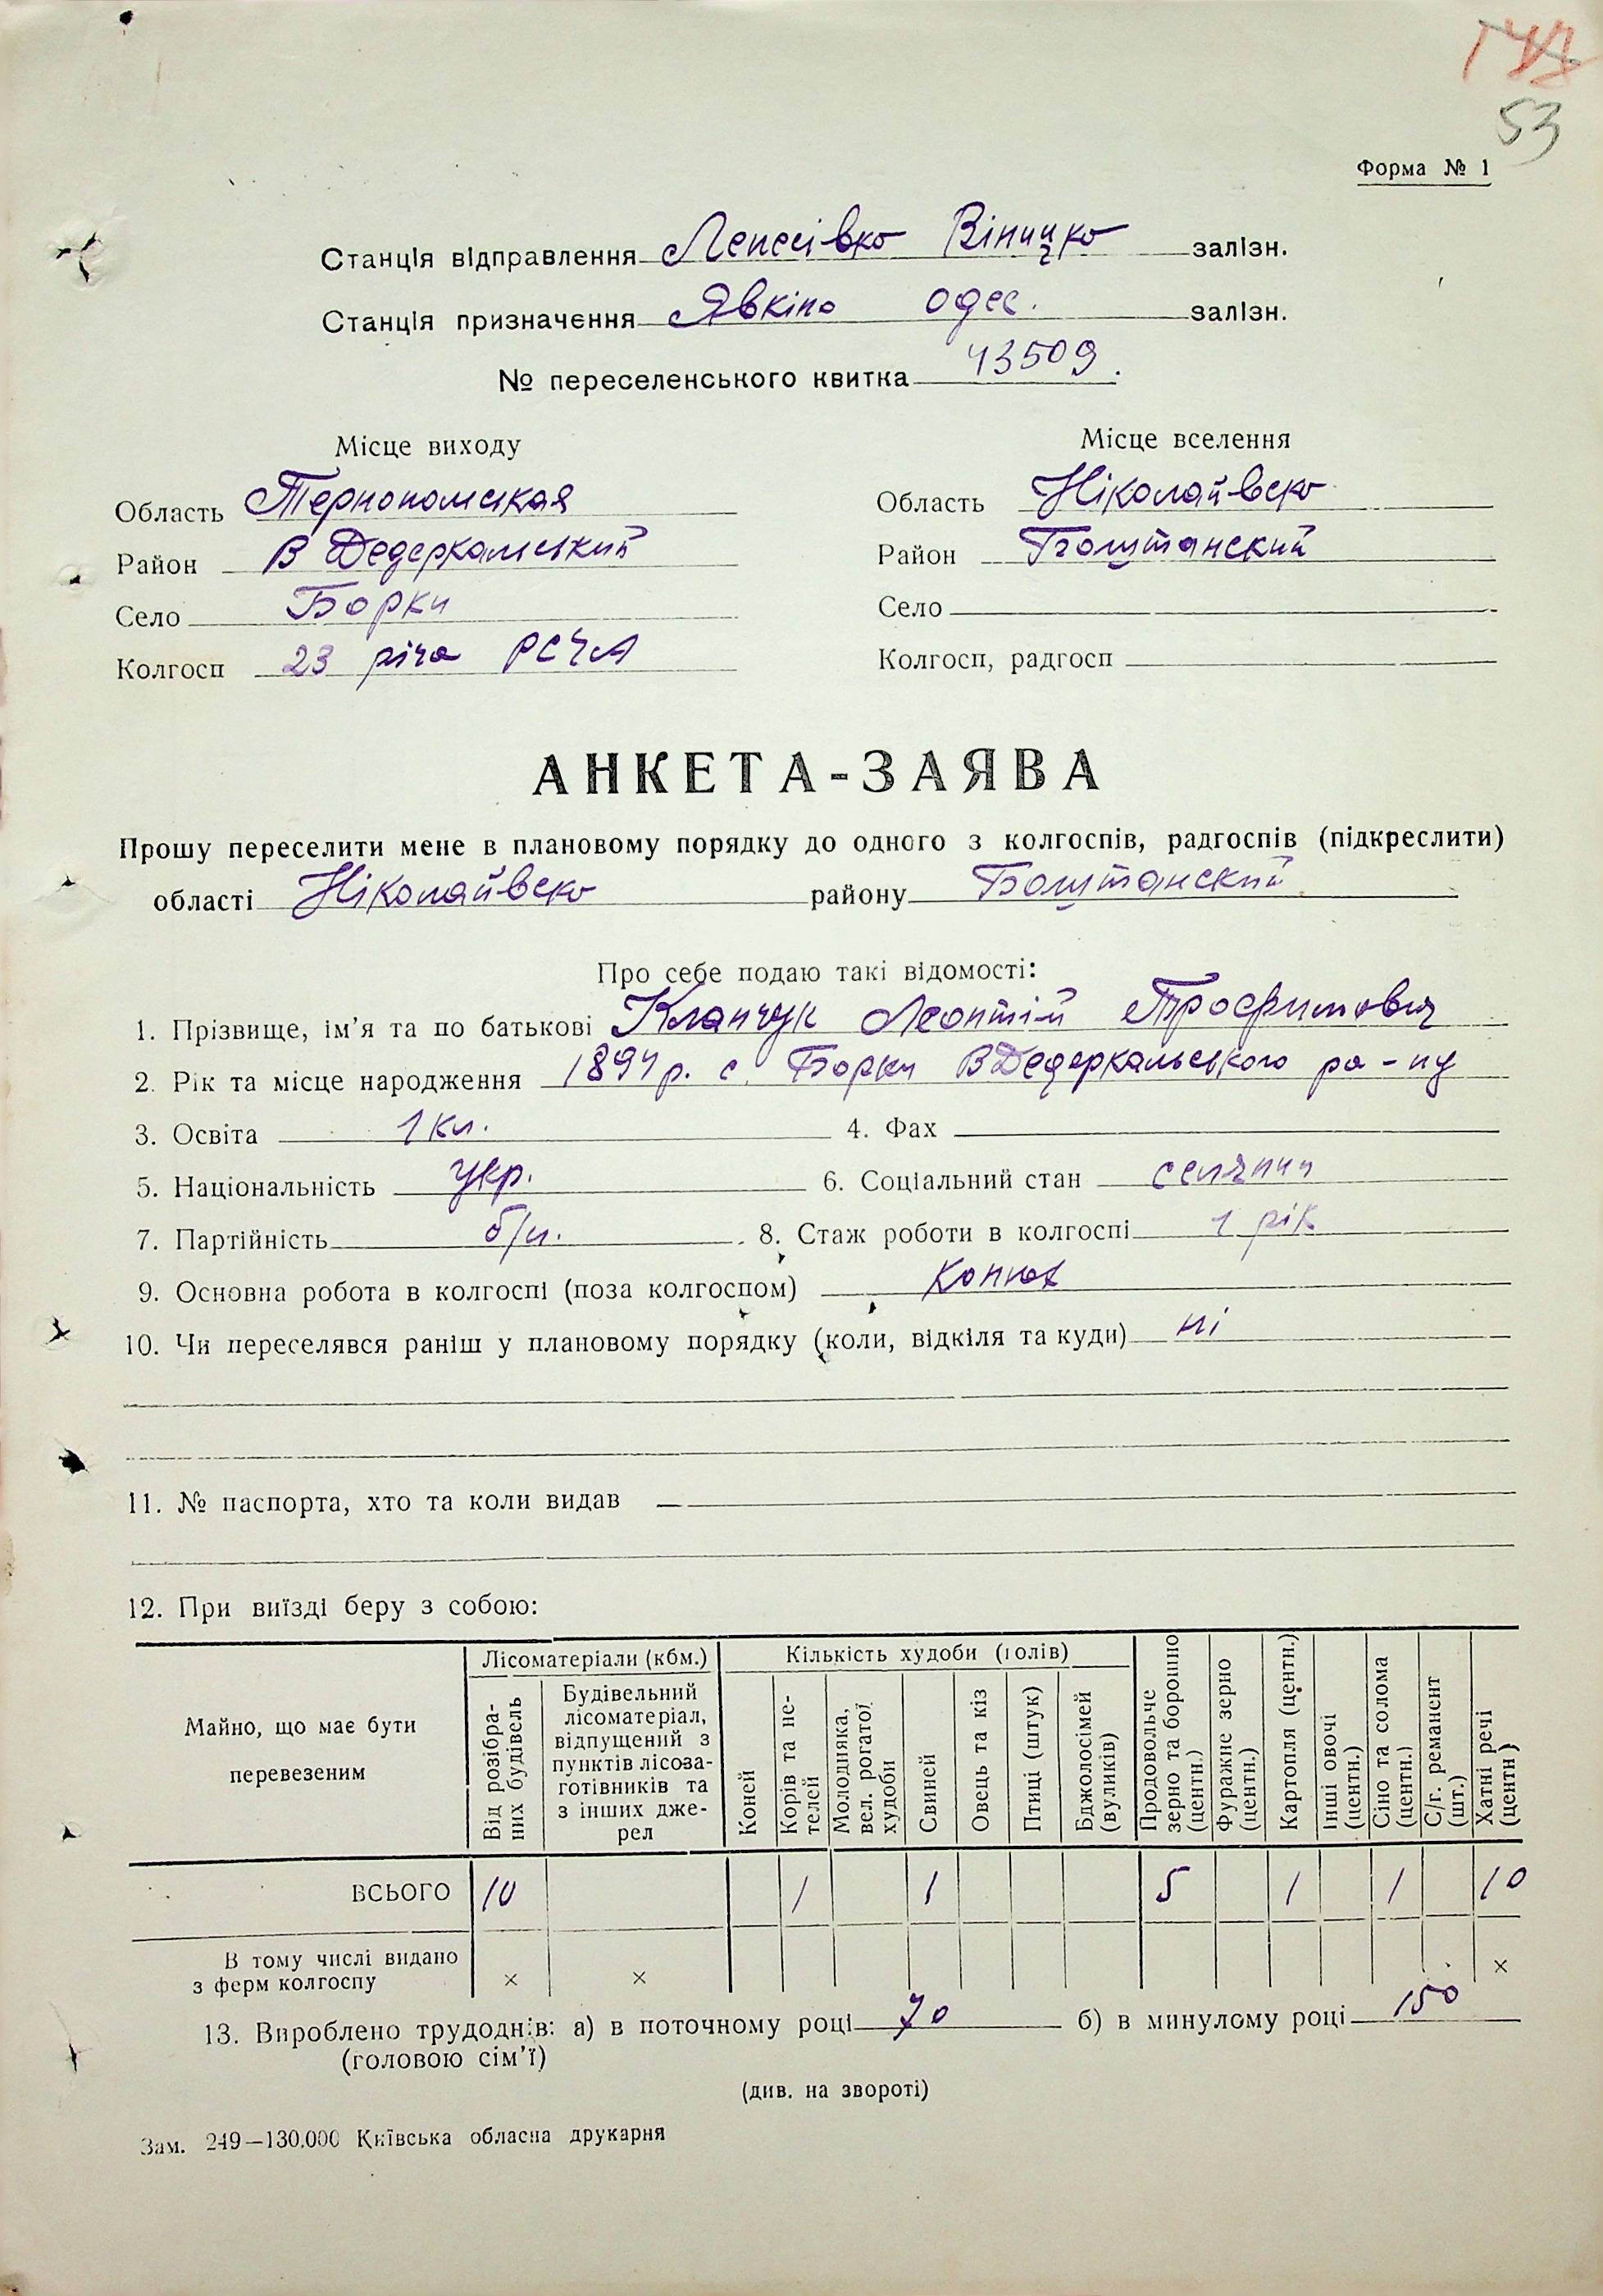 53
Форма № 1
Станція відправлення Лепесівко Вінницко залізн.
Станція призначення Явкіно Одес. залізн.
№ переселенського квитка 43509.
Місце виходу
Область Тернопольская
Район В Дедеркальський
Село Борки
Колгосп 23 річа РСЧА
Місце вселення
Область Ніколайвско
Район Боштанский
Село
Колгосп, радгосп
АНКЕТА-ЗАЯВА
Прошу переселити мене в плановому порядку до одного з колгоспів, радгоспів (підкреслити)
області Ніколайвско району Боштанский
Про себе подаю такі відомості:
1. Прізвище, ім'я та по батькові Клапчук Леонтій Трофимович
2. Рік та місце народження 1894 р. с Борки ВДедеркальського ра-ну
3. Освіта 1 кл. 4. Фах
5. Національність укр. 6. Соціальний стан селянин
7. Партійність б/п. 8. Стаж роботи в колгоспі 1 рік
9. Основна робота в колгоспі (поза колгоспом)
10. Чи переселявся раніш у плановому порядку (коли, відкіля та куди) ні
11. № паспорта, хто та коли видав —
12. При виїзді беру з собою:
Майно, що має бути перевезеним
Лісоматеріали (кбм.)
Від розібраних будівель
Будівельний лісоматеріал, відпущений з пунктів лісозаготівників та з інших джерел
Кількість худоби (голів)
Коней
Корів та нетелей
Молодняка, вел. рогатої худоби
Свиней
Овець та кіз
Птиці (штук)
Бджолосімей (вуликів)
Продовольче зерно та борошно (центн.)
Фуражне зерно (центн.)
Картопля (центн.)
Інші овочі (центн.)
Сіно та солома (центн.)
С/г. реманент (шт.)
Хатні речі (центн)
ВСЬОГО 10 1 1 5 1 1 10
В тому числі видано з ферм колгоспу × × ×
13. Вироблено трудоднів: а) в поточному році 70 б) в минулому році 150
(головою сім'ї)
(див. на звороті)
Зам. 249—130.000 Київська обласна друкарня